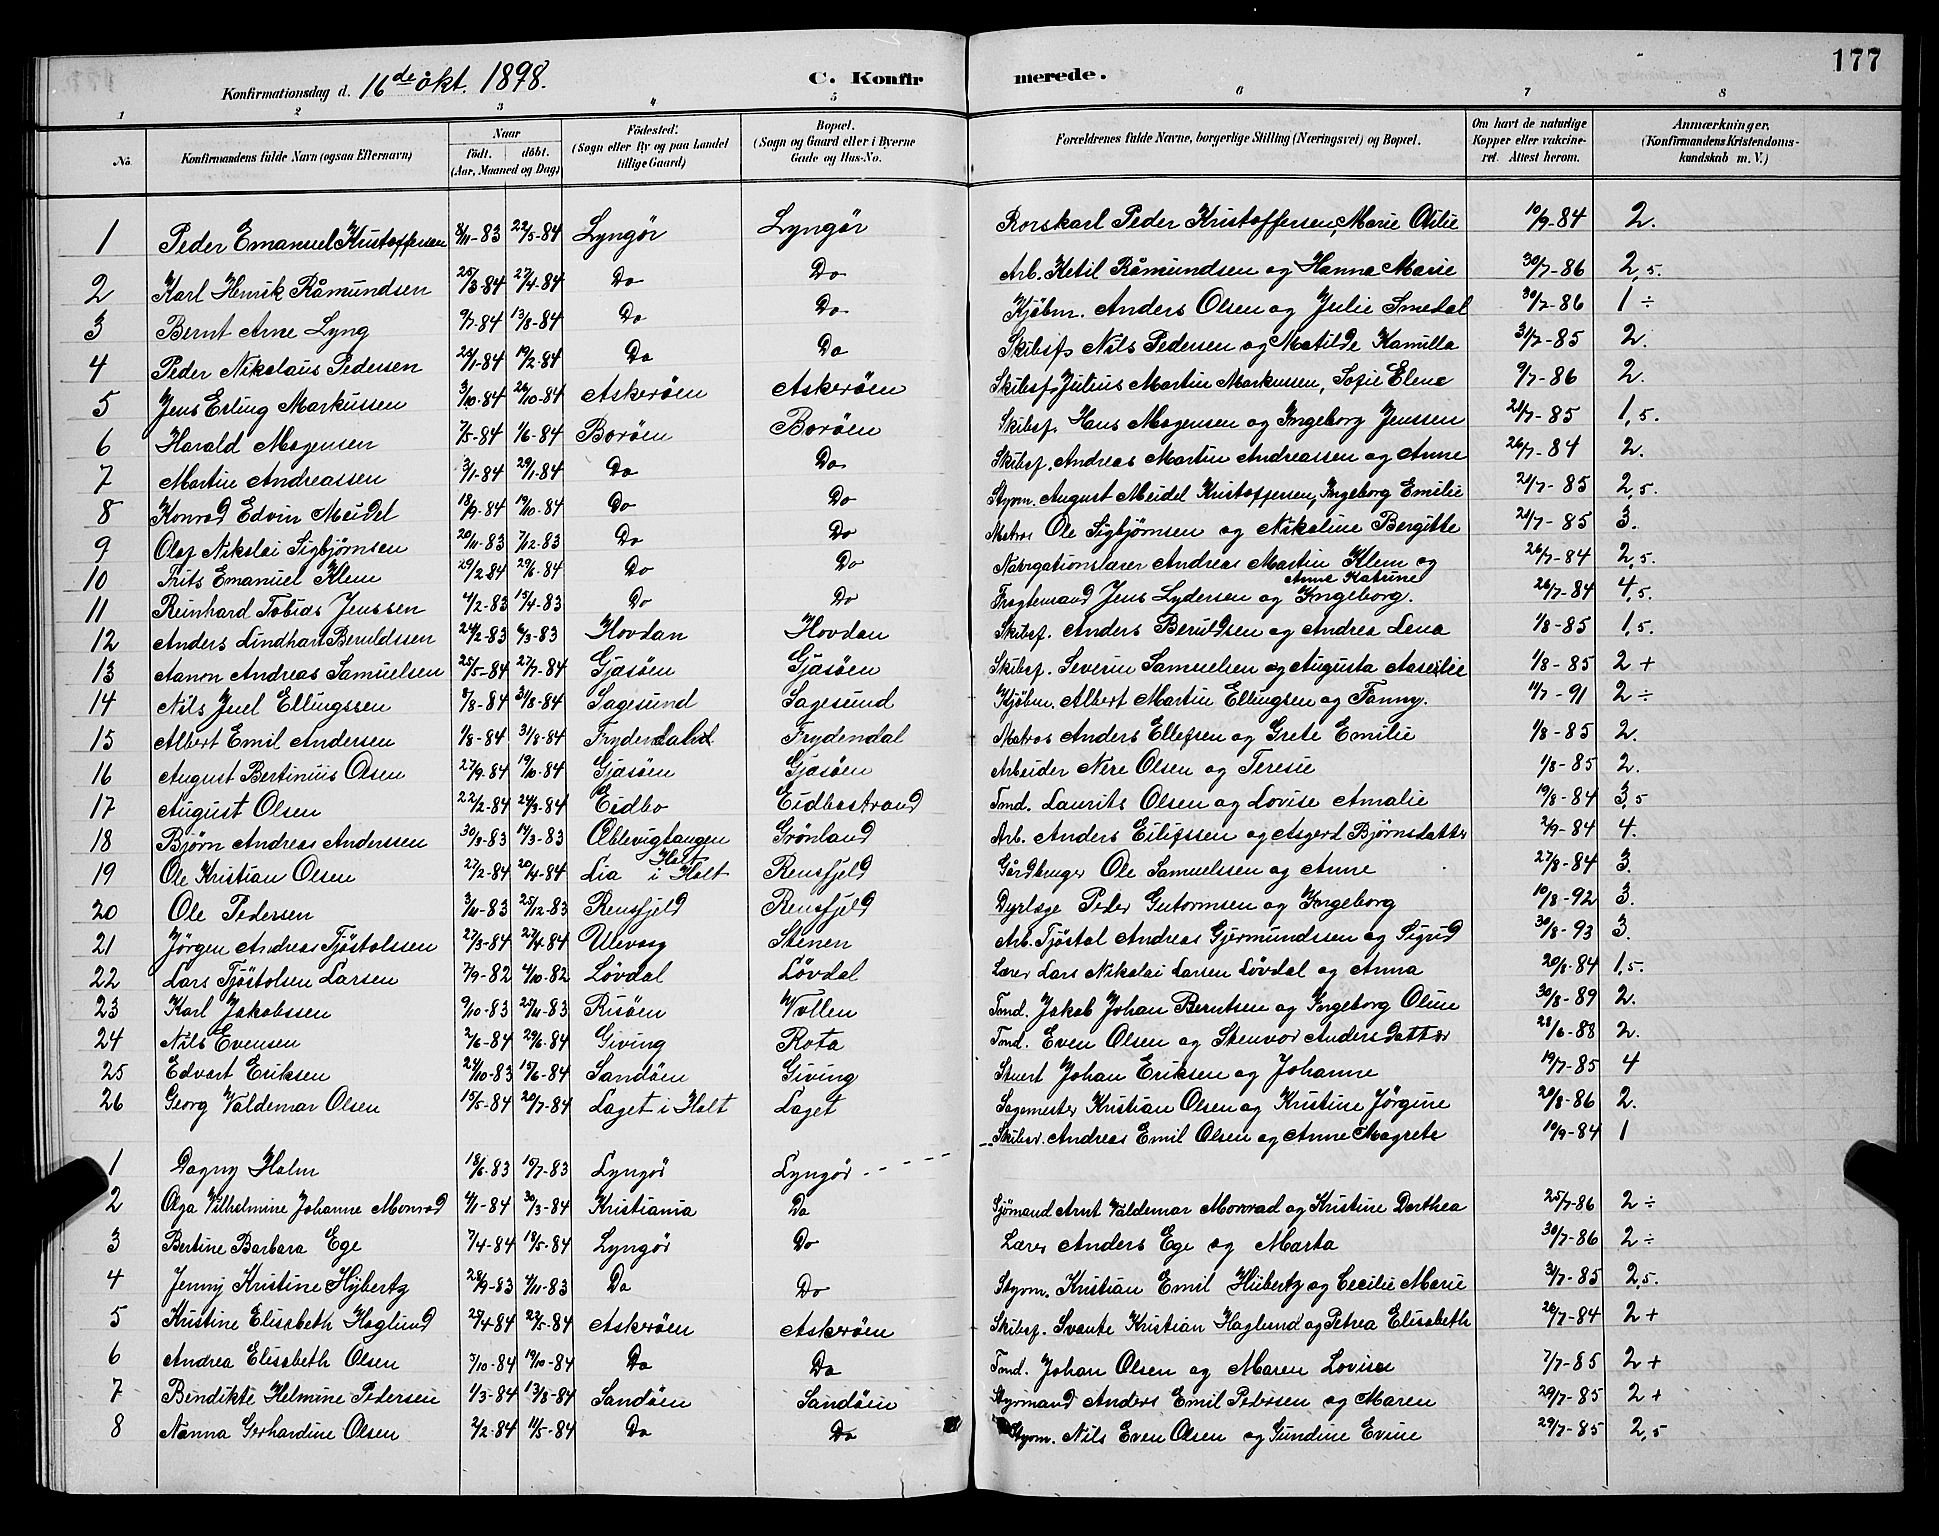 177
Konfirmationsdag d. 16de okt. 1898. C. Konfirmerede.
1 2 3 4 5 6 7 8
No. Konfirmandens fulde Navn (ogsaa Efternavn) Naar födt. döbt. (Aar, Maaned og Dag) Födested. (Sogn eller By og paa Landet tillige Gaard) Bopæl. (Sogn og Gaard eller i Byerne Gade og Hus-No. Forældrenes fulde Navne, borgerlige Stilling (Næringsvei) og Bopæl. Om havt de naturlige Kopper eller vakcineret. Attest herom. Anmærkninger, (Konfirmandens Kristendomskundskab m. V.)
1 Peder Emanuel Kristoffersen 8/11-83 22/5-84 Lyngör Lyngör Rorskarl Peder Kristoffersen, Marie Otilie 10/9-84 2.
2 Karl Henrik Råmundsen 25/3-84 27/4-84 Do Do Arb. Ketil Råmundsen og Hanna Marie 30/7-86 2,5.
3 Bernt Arne Lyng 9/7-84 13/8-84 Do Do Kjöbm. Anders Olsen og Julie Smedal 30/7-86 1 ÷
4 Peder Nikolaus Pedersen 25/1-84 19/2-84 Do Do Skibsf. Nils Pedersen og Matilde Kamilla 31/7-85 2.
5 Jens Erling Markussen 3/10-84 26/10-84 Askeröen Askeröen Skibsf. Julius Martin Markussen, Sofie Elene 9/7-86 2.
6 Harald Mogensen 7/5-84 1/6-84 Boröen Boröen Skibsf. Hans Mogensen og Ingeborg Jenssen 21/7-85 1,5.
7 Martin Andreassen 3/1-84 29/1-84 Do Do Skibsf. Andreas Martin Andreassen og Anne 26/7-84 2.
8 Konrad Edvin Meidel 18/9-84 19/10-84 Do Do Styrm. August Meidel Kristoffersen, Ingeborg Emilie 21/7-85 2,5.
9 Olaf Nikolai Sigbjörnsen 20/11-83 7/12-83 Do Do Matros Ole Sigbjörnsen og Nikoline Bergitte 21/7-85 3.
10 Frits Emanuel Klem 29/2-84 29/6-84 Do Do Navigationslærer Andreas Martin Klem og Anne Katrine 26/7-84 2,5.
11 Reinhard Tobias Jenssen 4/2-83 15/4-83 Do Do Fragtemand Jens Lydersen og Ingeborg. 26/7-84 4,5.
12 Anders Lindhart Beruldssen 24/2-83 6/3-83 Hovdan Hovdan Skibsf. Anders Beruldsen og Andrea Lena 1/8-85 1,5.
13 Aanon Andreas Samuelsen 25/5-84 27/7-84 Gjasöen Gjasöen Skibsf. Severin Samuelsen og Augusta Aaselie 1/8-85 2 +
14 Nils Juel Ellingssen 7/8-84 31/8-84 Sagesund Sagesund Kjöbm. Albert Martin Ellingsen og Fanny. 11/7-91 2 ÷
15 Albert Emil Andersen 1/8-84 31/8-84 Frydendal Frydendal Matros Anders Ellefsen og Grete Emilie 1/8-85 2.
16 August Bertinius Olsen 27/9-84 19/10-84 Gjasöen Gjasöen Arbeider Nere Olsen og Teresie 1/8-85 2.
17 August Olsen 22/2-84 24/3-84 Eidbo Eidbostrand Tmd. Laurits Olsen og Lovise Amalie 19/8-84 3,5
18 Björn Andreas Anderssen 30/3-83 14/3-83 Oblevigtangen Grönland Arb. Anders Eilifssen og Asgerd Björnsdatter 2/9-84 4.
19 Ole Kristian Olsen 27/2-84 20/4-84 Lia i Holt Rensfjeld Gårdbruger Ole Samuelssen og Anne 27/8-84 3.
20 Ole Pedersen 3/11-83 25/12-83 Rensfjeld Rensfjeld Dyrlæge Peder Gutormsen og Ingeborg 10/8-92 3.
21 Jörgen Andreas Tjöstolsen 27/3-84 27/4-84 Ulevaag Stenen Arb. Tjöstol Andreas Gjermundssen og Sigrid 30/8-93 3.
22 Lars Tjöstolsen Larsen 7/9-82 4/10-82 Lövdal Lövdal Lærer Lars Nikolai Larsen Lövdal og Anna 20/8-84 1,5.
23 Karl Jakobssen 9/10-83 25/11-83 Risöen Vollen Tmd. Jakob Johan Berntsen og Ingeborg Oline 30/8-89 2.
24 Nils Evensen 2/6-84 29/6-84 Giving Rota Tmd. Even Olsen og Stenvor Andersdatter 28/6-88 2.
25 Edvart Eriksen 24/10-83 15/6-84 Sandöen Giving Stuert Johan Eriksen og Johanne 19/7-85 4
26 Georg Valdemar Olsen 15/5-84 20/7-84 Laget i Holt Laget Sagmester Kristian Olsen og Kristine Jörgine 20/8-86 2.
1 Dagny Holm 18/6-83 15/7-83 Lyngör Lyngör Skibsr. Andreas Emil Olsen og Anne Magrete 10/9-84 1
2 Olga Vilhelmine Johanne Monrad 4/1-84 30/3-84 Kristiania Do Sjömand Arnt Valdemar Monrad og Kristine Dorthea 25/7-86 2 ÷
3 Bertine Barbara Ege 7/4-84 19/5-84 Lyngör Do Lærer Anders Ege og Marta 30/7-86 2 ÷
4 Jenny Kristine Hybertz 28/9-83 4/11-83 Do Do Styrm. Kristian Emil Hübertz og Cecilie Marie 31/7-85 2,5.
5 Kristine Elisabeth Haglund 25/4-84 22/5-84 Askeröen Askeröen Skibsf. Svante Kristian Haglund og Petrea Elisabeth 26/7-84 2 +
6 Andrea Elisabeth Olsen 5/10-84 19/10-84 Do Do Tmd. Johan Olsen og Maren Lovise 7/7-85 2 +
7 Bendikte Helmine Pedersen 1/3-84 13/8-84 Sandöen Sandöen Styrmand Anders Emil Pedersen og Maren 29/7-85 2 +
8 Nanna Gerhardine Olsen 2/2-84 11/5-84 Do Do Styrm. Nils Even Olsen og Gundine Evine 29/7-85 2,5